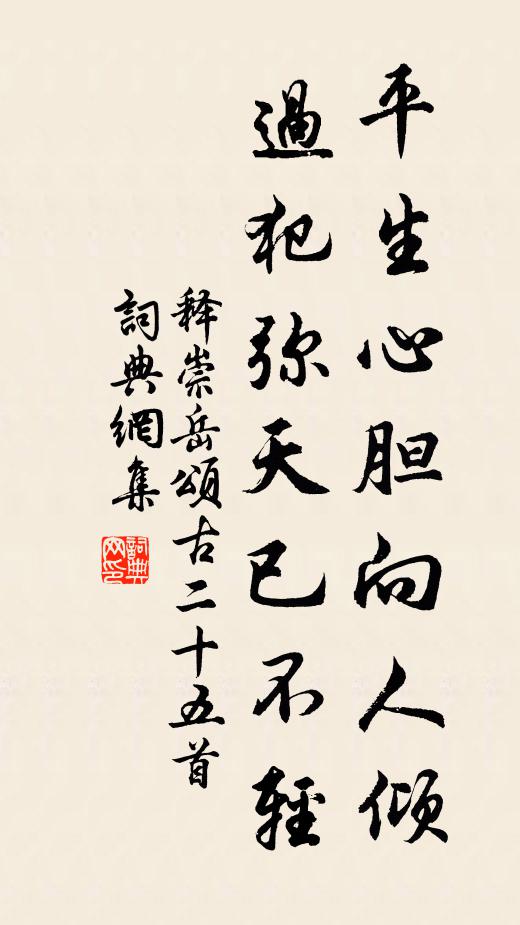 平生心胆向人倾
過犯弥天已不輕
释崇岳頌古二十五首
詞典網集
詞典网印